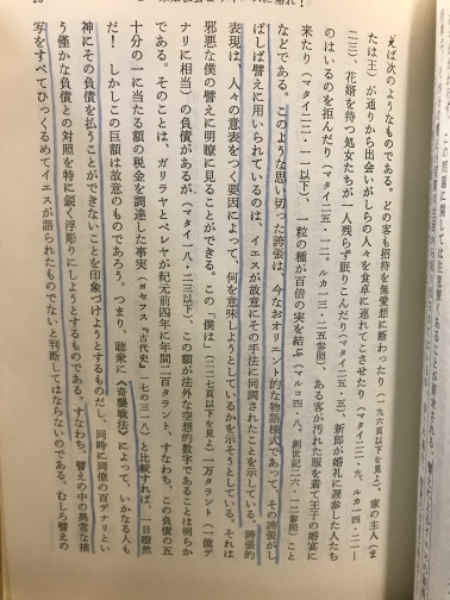 原始教会からイエスに帰れ！
えば次のようなものである。どの客も招待を無愛想に断わったり（一九六頁以下を見よ）、家の主人（ま
たは王）が通りから出会いがしらの人々を食卓に連れてこさせたり（マタイ二二・九、ルカ一四・二一―
二三）、花婿を待つ処女たちが一人残らず眠りこんだり（マタイ二五・五）、新郎が婚礼に遅参した人たち
のはいるのを拒んだり（マタイ二五・一二、ルカ一三・二五参照）、ある客が汚れた服を着て王子の婚宴に
来たり（マタイ二二・一一以下）、一粒の種が百倍の実を結ぶ（マルコ四・八。創世記二六・一二参照）こと
などである。このような思い切った誇張は、今なおオリエント的な物語様式であって、その誇張がし
ばしば譬えに用いられているのは、イエスが故意にその手法に同調されたことを示している。誇張的
表現は、人々の意表をつく要因によって、何を意味しようとしているかを示そうとしている。それは
邪悪な僕の譬えに明瞭に見ることができる。この「僕は」（二二七頁以下を見よ）一万タラント（一億デ
ナリに相当）の負債があるが（マタイ一八・二三以下）、この額が法外な空想的数字であることは明らか
である。そのことは、ガリラヤとペレヤが紀元前四年に年間二百タラント、すなわち、この負債の五
十分の一に当たる額の税金を調達した事実（ヨセフス『古代史』一七の三一八）と比較すれば、一目瞭然
だ！　しかしこの巨額は故意のものであろう。つまり、聴衆に《奇襲戦法》によって、いかなる人も
神にその負債を払うことができないことを印象づけようとするものだし、同時に同僚の百デナリとい
う僅かな負債との対照を特に鋭く浮彫りにしようとするものである。すなわち、譬えの中の異常な描
写をすべてひっくるめてイエスが語られたものでないと判断してはならないのである。むしろ譬えの